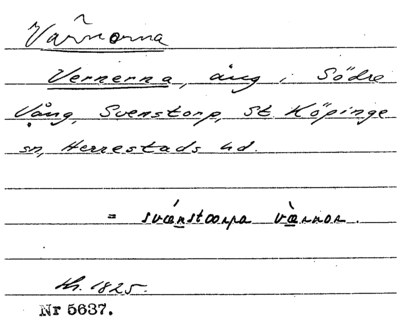 Värnorna
Vernerna, äng i Södre
Vång, Svenstorp, St. Köpinge
sn, Herrestads hd.
= svänstoarpa värnor.
1825.
Nr 5637.